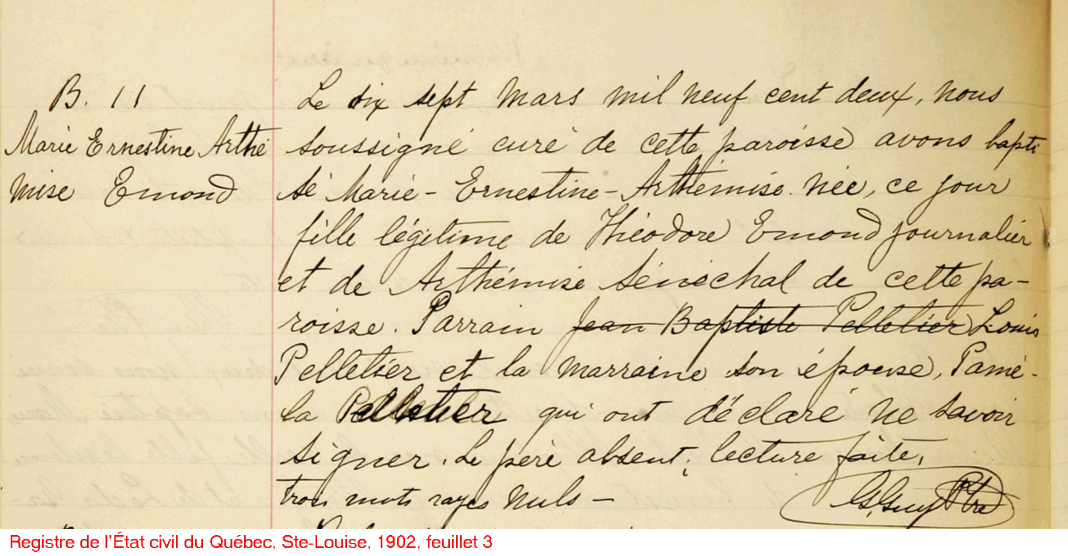 B. 11
Marie Ernestine Arthé
mise Emond
Le dix sept Mars mil neuf cent deux, nous
soussigné curé de cette paroisse avons bapti
sé Marie-Ernestine-Arthémise née, ce jour
fille légitime de Théodore Emond journalier
et de Arthémise Sénéchal de cette pa-
roisse. Parrain Jean Baptiste Pelletier Louis
Pelletier et la marraine son épouse, Pamé-
la Pelletier qui ont déclaré ne savoir
signer. Le père absent; lecture faite,
trois mots rayés nuls -
G. Guy Ptre
Registre de l'État civil du Québec, Ste-Louise, 1902, feuillet 3